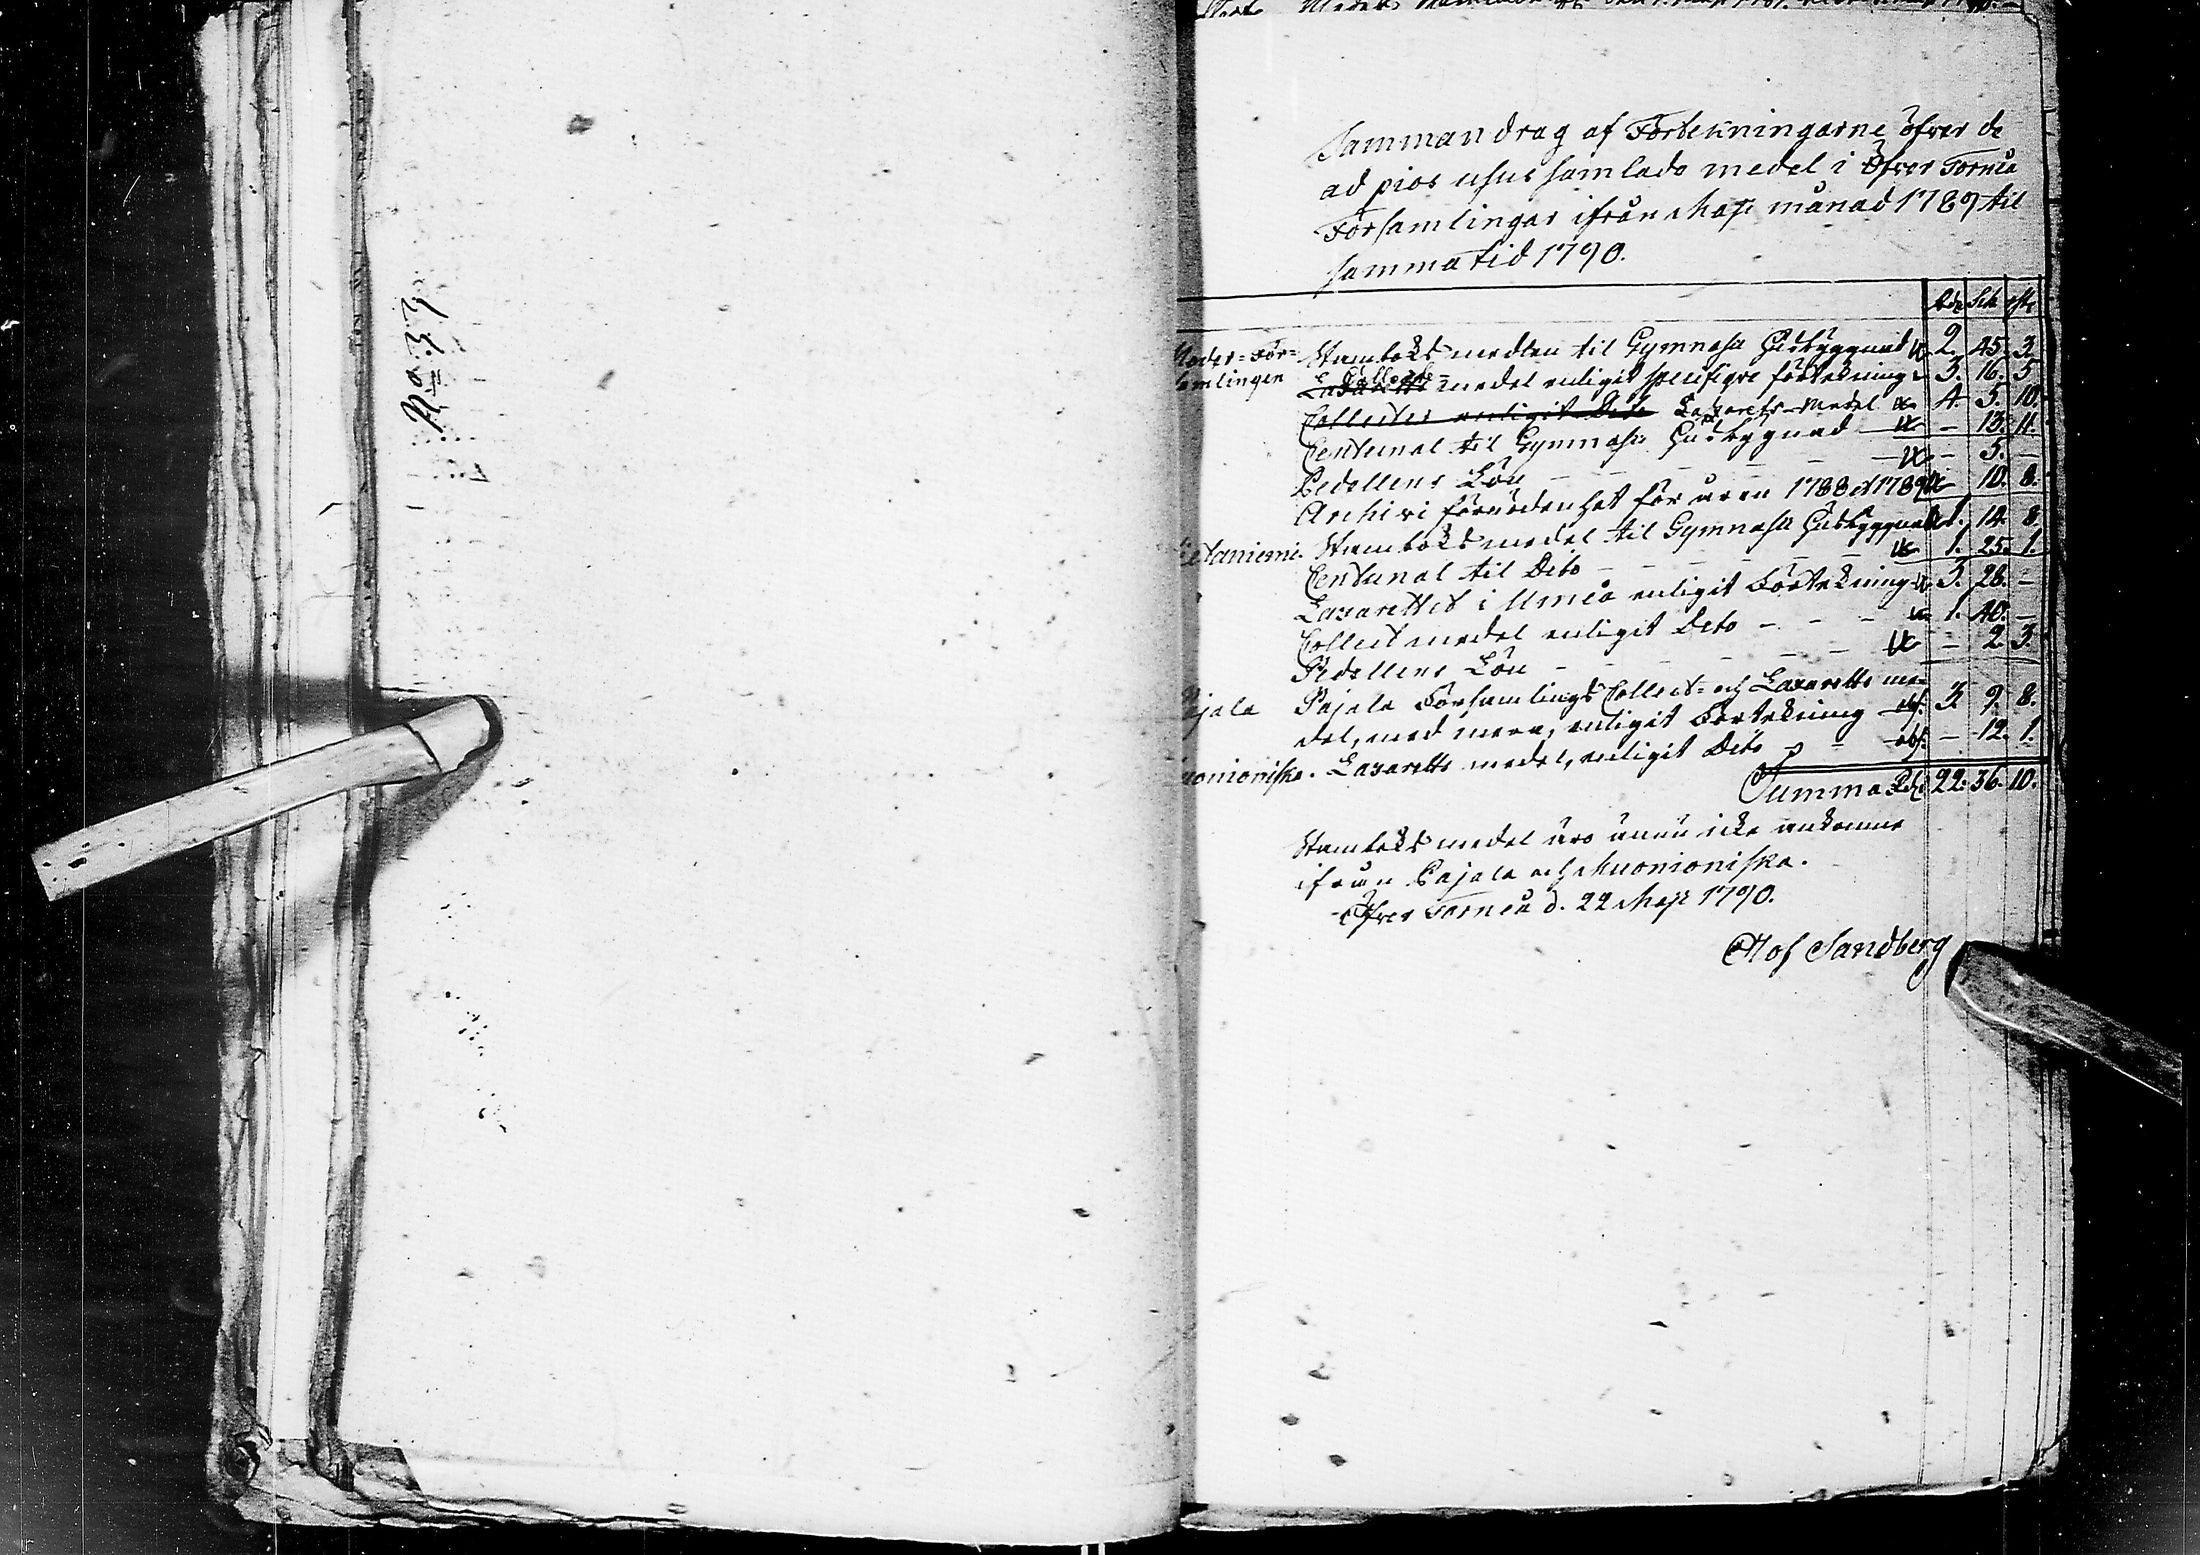 No 37.
Sammandrag af Förtekningarne öfver de
ad pios usus samlade medel i Öfver Torneå
Församlingar ifrån Maji månad 1789 til
samma tid 1790.
Rdr Sch rst
Moder-För= Stamboks medlen til Gymnasii Husbyggnad 2. 45. 3.
samlingen Collect- medel enligit specifiqve förtekning 3. 16. 5
Collecter enligit Dito Lazaretts-Medel 4. 5. 10.
Centunal til Gymnasii Husbyggnad - 13. 11.
Pedellens Lön - 5. -
Archivi förnödenhet för åren 1788 et 1789 - 10. 8.
Hietaniemi. Stamboks medel til Gymnasii Husbyggnad 1. 14. 8.
Centunal til Dito 1. 25. 1.
Lazarettet i Umeå enligit Förtekning 3. 28. -
Collect medel enligit Dito 1. 40. -
Pedellens Lön - 2. 3.
Pajala Pajala Församlings Collect- och Lazaretts me-
del, med mera, enligit Förtekning 3. 9. 8.
uonioniska. Lazaretts medel, enligit Dito - 12. 1.
Summa Rdr 22. 36. 10.
Stamboks medel äro ännu icke ankomne
ifrån Pajala och Muonioniska.
Öfver Torneå d. 22 Maji 1790.
Olof Sandberg